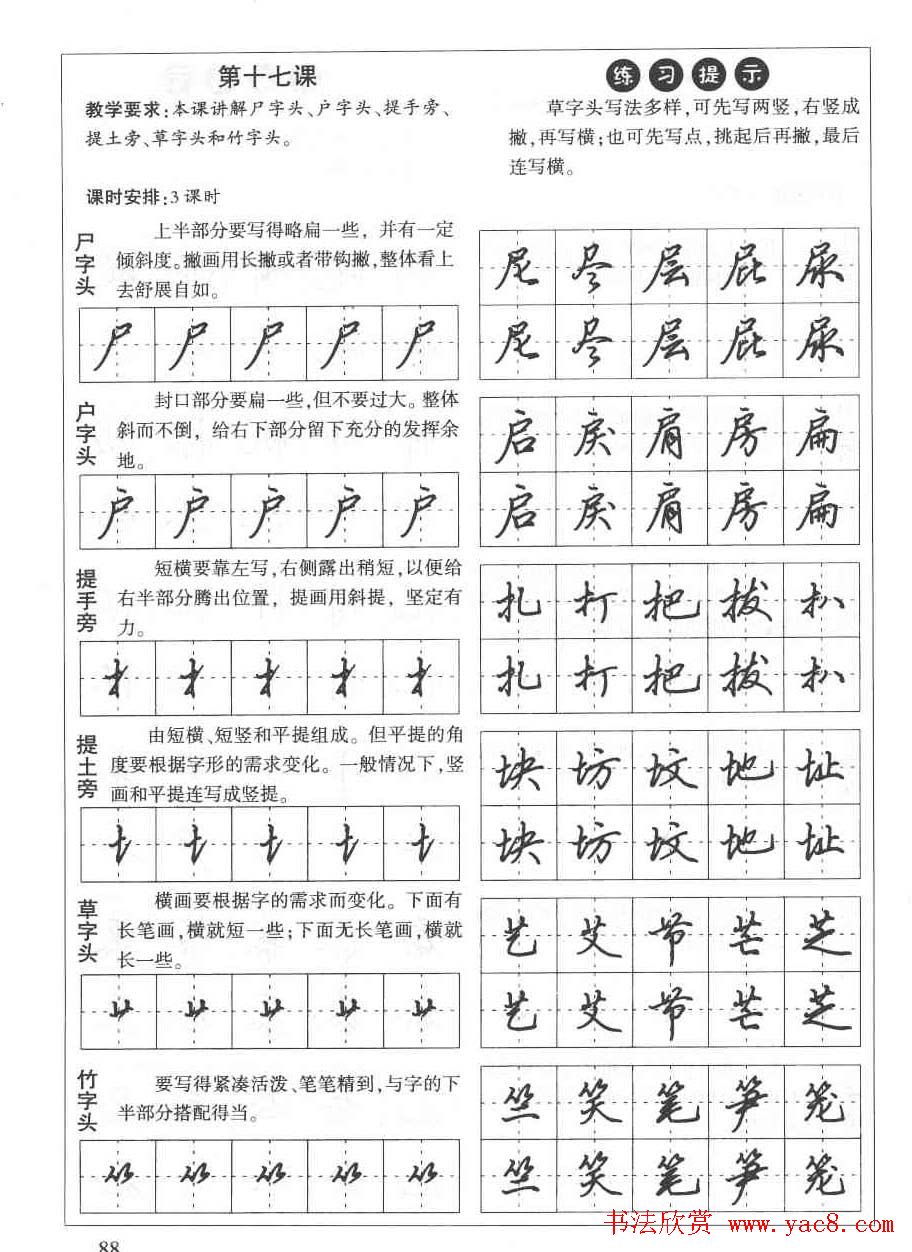 第十七课
教学要求:本课讲解尸字头、户字头、提手旁、
提土旁、草字头和竹字头。
课时安排:3课时
练习提示
草字头写法多样,可先写两竖,右竖成
撇,再写横;也可先写点,挑起后再撇,最后
连写横。
尸字头
上半部分要写得略扁一些，并有一定
倾斜度。撇画用长撇或者带钩撇,整体看上
去舒展自如。
尸尸尸尸尸
尾尽层屁尿
尾尽层屁尿
户字头
封口部分要扁一些,但不要过大。整体
斜而不倒，给右下部分留下充分的发挥余
地。
户户户户户
启戾肩房扁
启戾肩房扁
提手旁
短横要靠左写,右侧露出稍短,以便给
右半部分腾出位置，提画用斜提，坚定有
力。
扌扌扌扌扌
扎打把拔扒
扎打把拔扒
提土旁
由短横、短竖和平提组成。但平提的角
度要根据字形的需求变化。一般情况下,竖
画和平提连写成竖提。
土土土土土
块坊坟地址
块坊坟地址
草字头
横画要根据字的需求而变化。下面有
长笔画,横就短一些;下面无长笔画,横就
长一些。
艹艹艹艹艹
艺艾节芒芝
艺艾节芒芝
竹字头
要写得紧凑活泼、笔笔精到,与字的下
半部分搭配得当。
⺮⺮⺮⺮⺮
竺笑笔笋笼
竺笑笔笋笼
书法欣赏 www.yac8.com
88